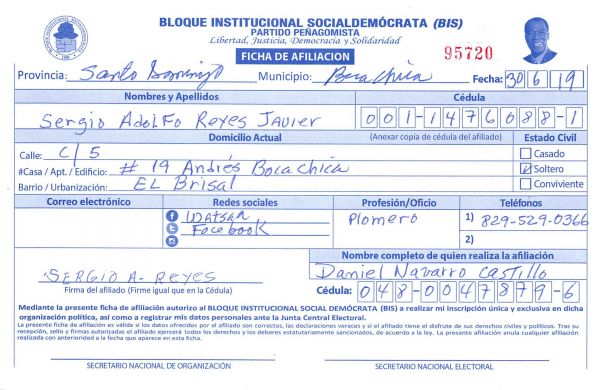 BLOQUE INSTITUCIONAL SOCIALDEMÓCRATA (BIS)
PARTIDO PEÑAGOMISTA
Libertad, Justicia, Democracia y Solidaridad
FICHA DE AFILIACION
95720
Provincia: Santo Domingo Municipio: Boca Chica Fecha: 30 6 19
Nombres y Apellidos Cédula
Sergio Adolfo Reyes Javier 001-1476088-1
Domicilio Actual (Anexar copia de cédula del afiliado) Estado Civil
Calle: C/5 Casado
#Casa / Apt. / Edificio: #19 Andrés Boca Chica Soltero
Barrio / Urbanización: EL Brisal Conviviente
Correo electrónico Redes sociales Profesión/Oficio Teléfonos
Watsan Plomero 1) 829-529-0366
Facebook 2)
Nombre completo de quien realiza la afiliación
SERGIO A. REYES Daniel Navarro Castillo
Firma del afiliado (Firme igual que en la Cédula) Cédula: 048-0047879-6
Mediante la presente ficha de afiliación autorizo al BLOQUE INSTITUCIONAL SOCIAL DEMÓCRATA (BIS) a realizar mi inscripción única y exclusiva en dicha
organización política, así como a registrar mis datos personales ante la Junta Central Electoral.
La presente ficha de afiliación es válida si los datos ofrecidos por el afiliado son correctos, las declaraciones veraces y si el afiliado tiene el disfrute de sus derechos civiles y políticos. Tras su
recepción, sello y firmas autorizadas el afiliado ejercerá todos los derechos y los deberes estatutariamente sancionados, de acuerdo a la ley. La presente afiliación anula cualquier afiliación
realizada con anterioridad a la fecha que aparece en esta ficha.
SECRETARIO NACIONAL DE ORGANIZACIÓN SECRETARIO NACIONAL ELECTORAL